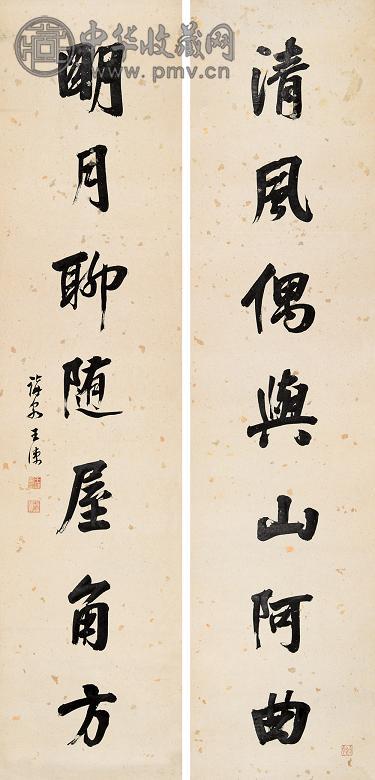 中华收藏网
www.pmv.cn
清風偶與山阿曲
明月聊随屋角方
王